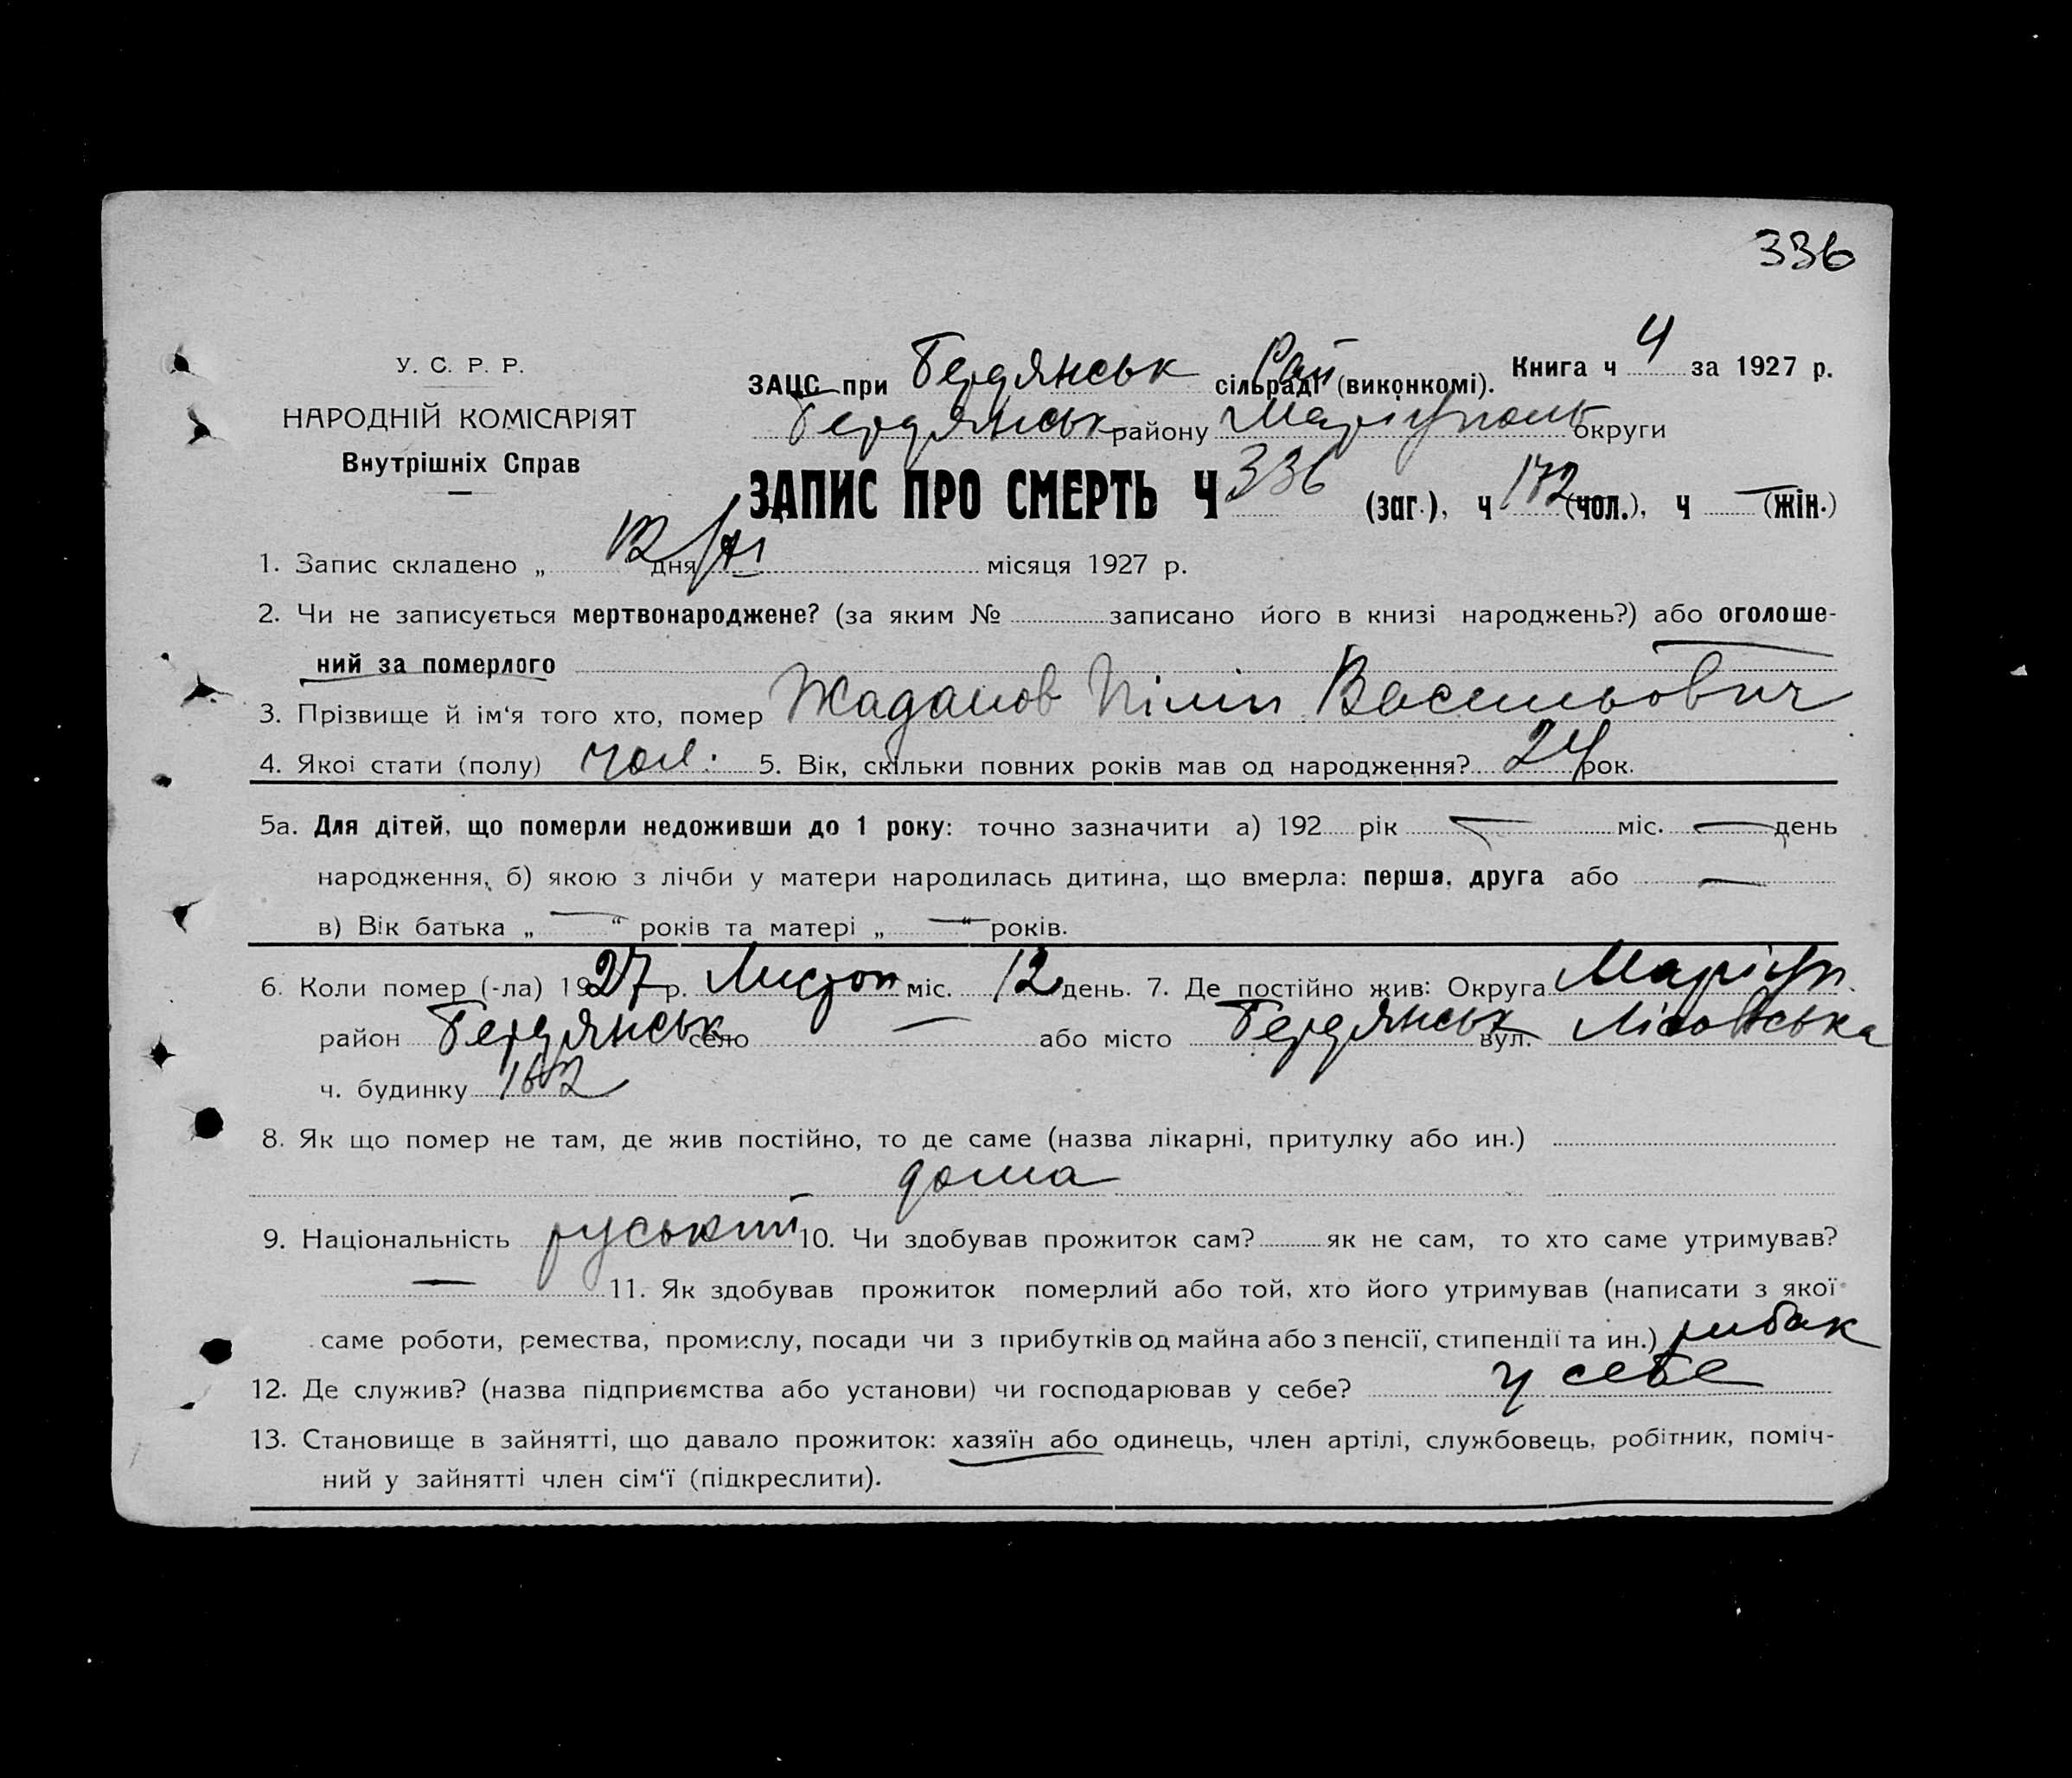 336
У. С. Р. Р.
НАРОДНІЙ КОМІСАРІЯТ
Внутрішніх Справ
ЗАЦС при Бердянськ Рай сільраді (виконкомі). Книга ч 4 за 1927 р.
Бердянськ району Маріуполь округи
ЗАПИС ПРО СМЕРТЬ Ч 336 (заг.), ч 172 (чол.), ч — (жін.)
1. Запис складено „ 12 дня XI місяця 1927 р.
2. Чи не записується мертвонароджене? (за яким № записано його в книзі народжень?) або оголоше-
ний за померлого
3. Прізвище й ім‘я того хто, помер Жаданов Пілип Васильович
4. Якоі стати (полу) чол: 5. Вік, скільки повних років мав од народження? 24 рок.
5а. Для дітей, що померли недоживши до 1 року: точно зазначити а) 192 рік — міс. — день
народження, б) якою з лічби у матери народилась дитина, що вмерла: перша, друга або —
в) Вік батька „ — “ років та матері „ — “ років.
6. Коли помер (-ла) 1927 р. Листоп міс. 12 день. 7. Де постійно жив: Округа Маріуп.
район Бердянськ село — або місто Бердянськ вул. Лісовська
ч. будинку 162
8. Як що помер не там, де жив постійно, то де саме (назва лікарні, притулку або ин.)
дома
9. Національність руський 10. Чи здобував прожиток сам? як не сам, то хто саме утримував?
— 11. Як здобував прожиток померлий або той, хто його утримував (написати з якої
саме роботи, ремества, промислу, посади чи з прибутків од майна або з пенсії, стипендії та ин.) рибак
12. Де служив? (назва підприємства або установи) чи господарював у себе? у себе
13. Становище в зайнятті, що давало прожиток: хазяїн або одинець, член артілі, службовець, робітник, поміч-
ний у зайнятті член сім‘ї (підкреслити).